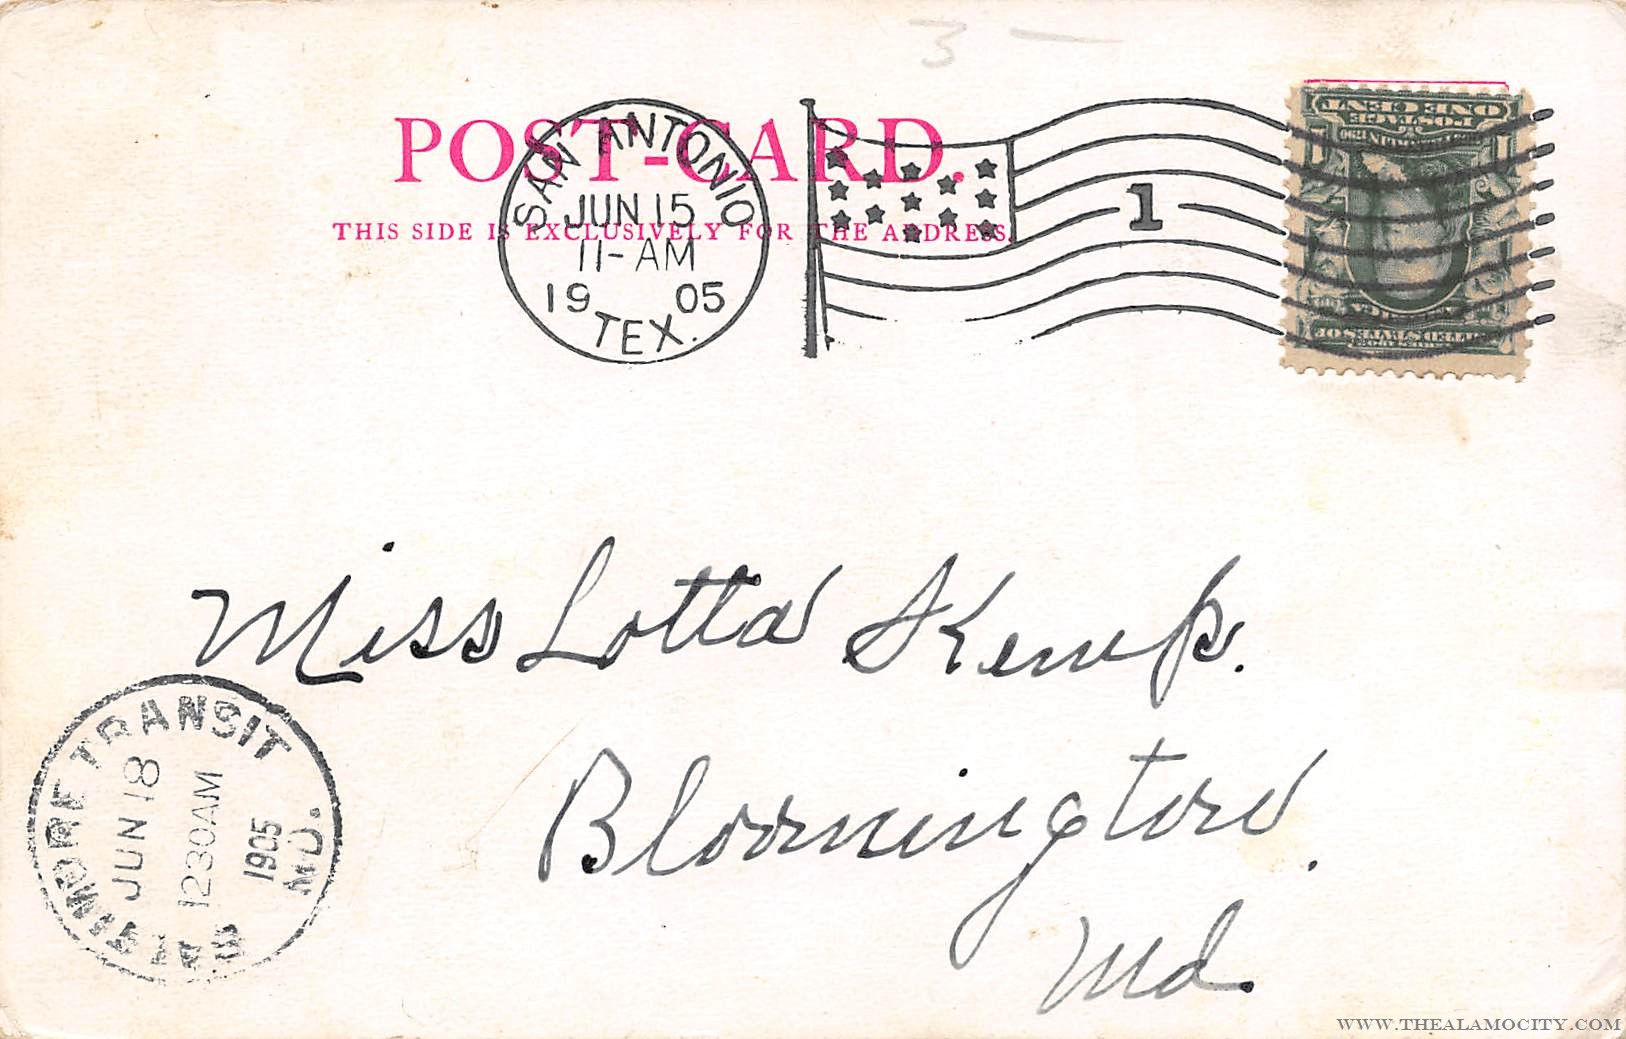 3 —
POST-CARD.
THIS SIDE IS EXCLUSIVELY FOR THE ADDRESS.
SAN ANTONIO
JUN 15
11-AM
19 05
TEX.
1
ONE CENT
POSTAGE
1 1
UNITED STATES OF
Miss Lotta Kemp.
Bloomington.
Md.
BALTIMORE TRANSIT
JUN 18
1230AM
1905
MD.
WWW.THEALAMOCITY.COM